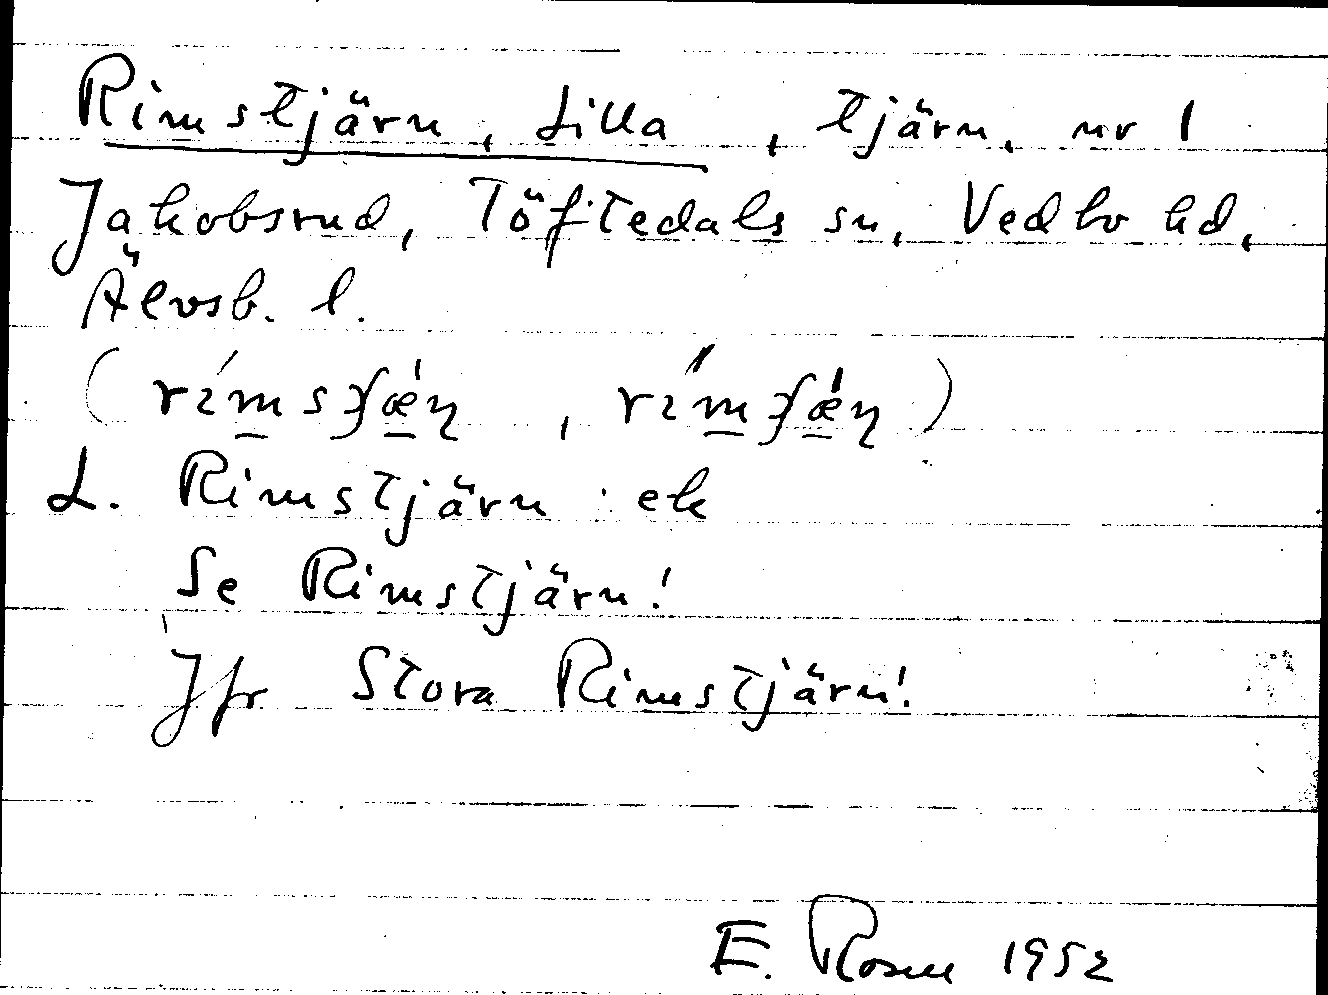 Rimstjärn, Lilla, tjärn, nr 1
Jakobsrud, Töftedals sn, Vedbo hd,
Älvsb. l.
L. Rimstjärn : ek
Se Rimstjärn!
Jfr Stora Rimstjärn!
E. Rosell 1952